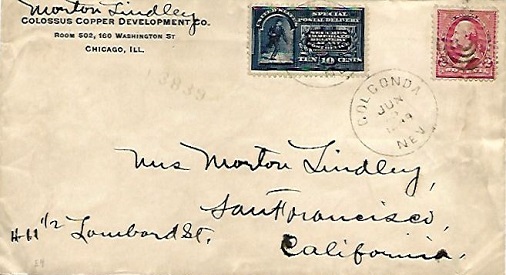 Morton Lindley
COLOSSUS COPPER DEVELOPMENT CO.
ROOM 502, 160 WASHINGTON ST
CHICAGO, ILL.
SPECIAL
POSTAL DELIVERY
TEN 10 CENTS
3839
GOLCONDA
JUN
NEV.
Mrs Morton Lindley,
San Francisco,
Lombard St.
California.